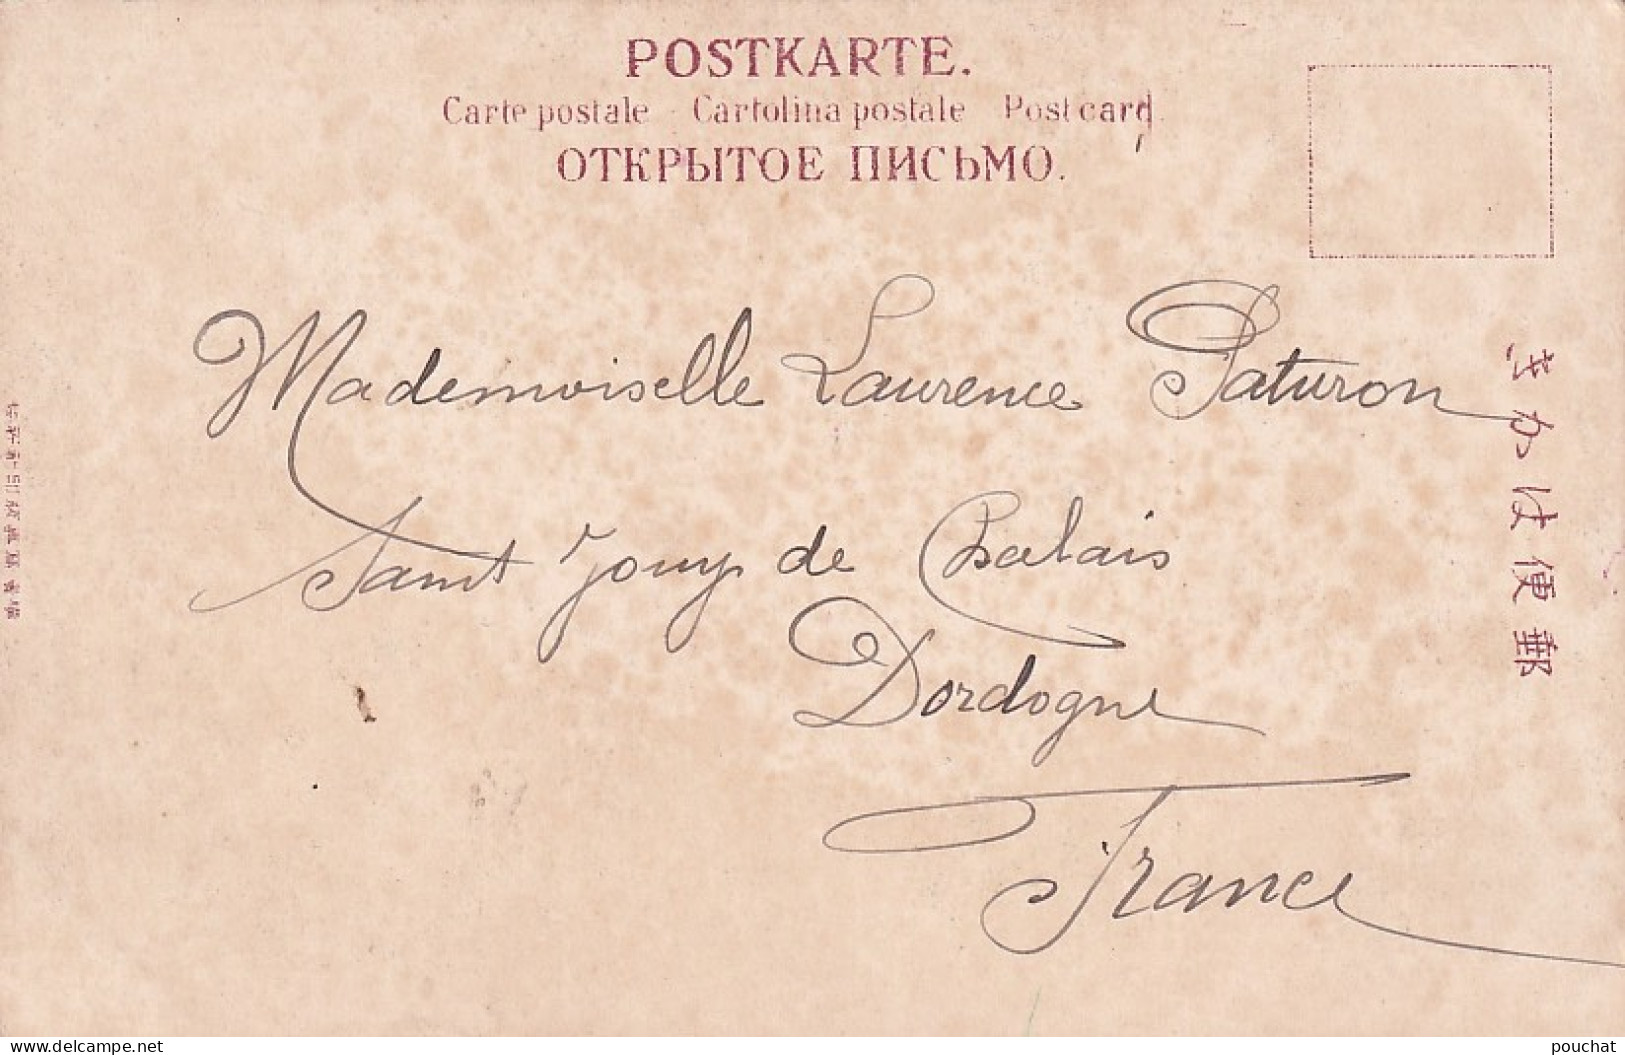 POSTKARTE.
Carte postale - Cartolina postale Post card.
ОТКРЫТОЕ ПИСЬМО.
Mademoiselle Laurence Paturon
Saint Jouy de
Dordogne
France
きかは便郵
www.delcampe.net
pouchat